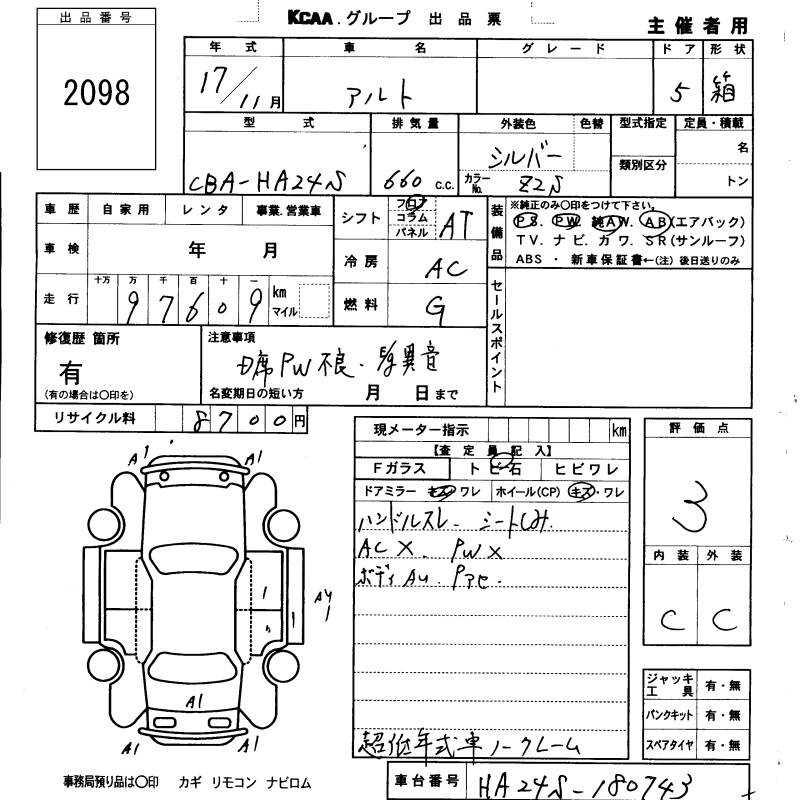 出品番号
2098
KCAA.グループ 出品票
主催者用
年式 車名 グレード ドア 形状
17/11月 アルト 5 箱
型式 排気量 外装色 色替 型式指定 定員・積載
CBA-HA24S 660 c.c. シルバー カラーNo. Z2S 類別区分 名 トン
車歴 自家用 レンタ 事業.営業車
車検 年 月
走行 十万 万 千 百 十 一
97609 km マイル
シフト フロア コラム パネル AT
冷房 AC
燃料 G
装備品
※純正のみ〇印をつけて下さい。
PS. PW. 純AW. AB(エアバック)
TV. ナビ. カワ. SR(サンルーフ)
ABS ・ 新車保証書←(注) 後日送りのみ
セールスポイント
修復歴 箇所
有
(有の場合は〇印を)
注意事項
PW不良. 異音
名変期日の短い方 月 日まで
リサイクル料 8700円
現メーター指示 km
【査定員記入】
Fガラス トビ石 ヒビワレ
ドアミラー キズ・ワレ ホイール(CP) キズ・ワレ
ハンドルスレ. シートしみ.
AC X. PW X
ボディAU. Pアセ.
超低年式車ノークレーム
評価点
3
内装 外装
C C
ジャッキ工具 有・無
パンクキット 有・無
スペアタイヤ 有・無
A1 A1
AU
1
A1 A1
A1 A1
事務局預り品は〇印 カギ リモコン ナビロム
車台番号 HA24S-180743